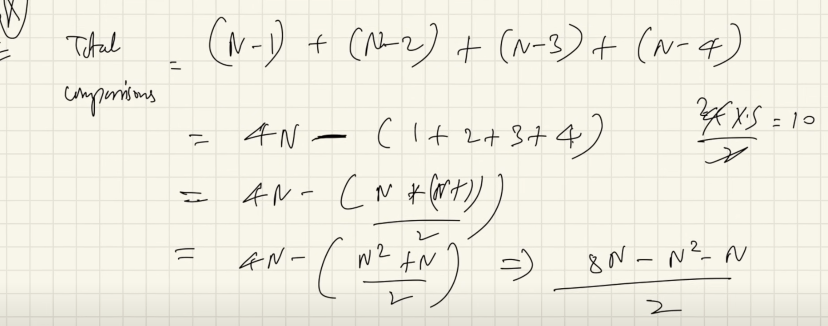 Total comparisons = (N-1) + (N-2) + (N-3) + (N-4)
= 4N - (1+2+3+4)
2 4 X 5 / 2 = 10
= 4N - (N * (N+1) / 2)
= 4N - (N² + N / 2) => 8N - N² - N / 2